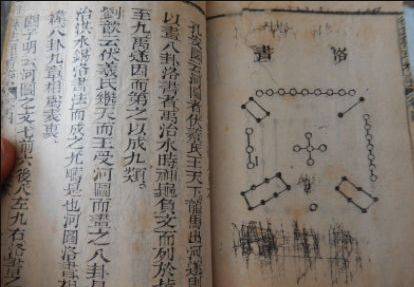 洛書
孔安國云河圖者伏羲氏王天下龍馬出河遂則
以畫八卦洛書者禹治水時神龜負文而列於背
至九禹遂因而第之以成九類
劉歆云伏羲氏繼天而王受河圖而畫之八卦是
治洪水錫洛書法而成之九疇是也河圖洛書相
緯八卦九章相為表裏
關子明云河圖之文七前六後八左九右洛書之